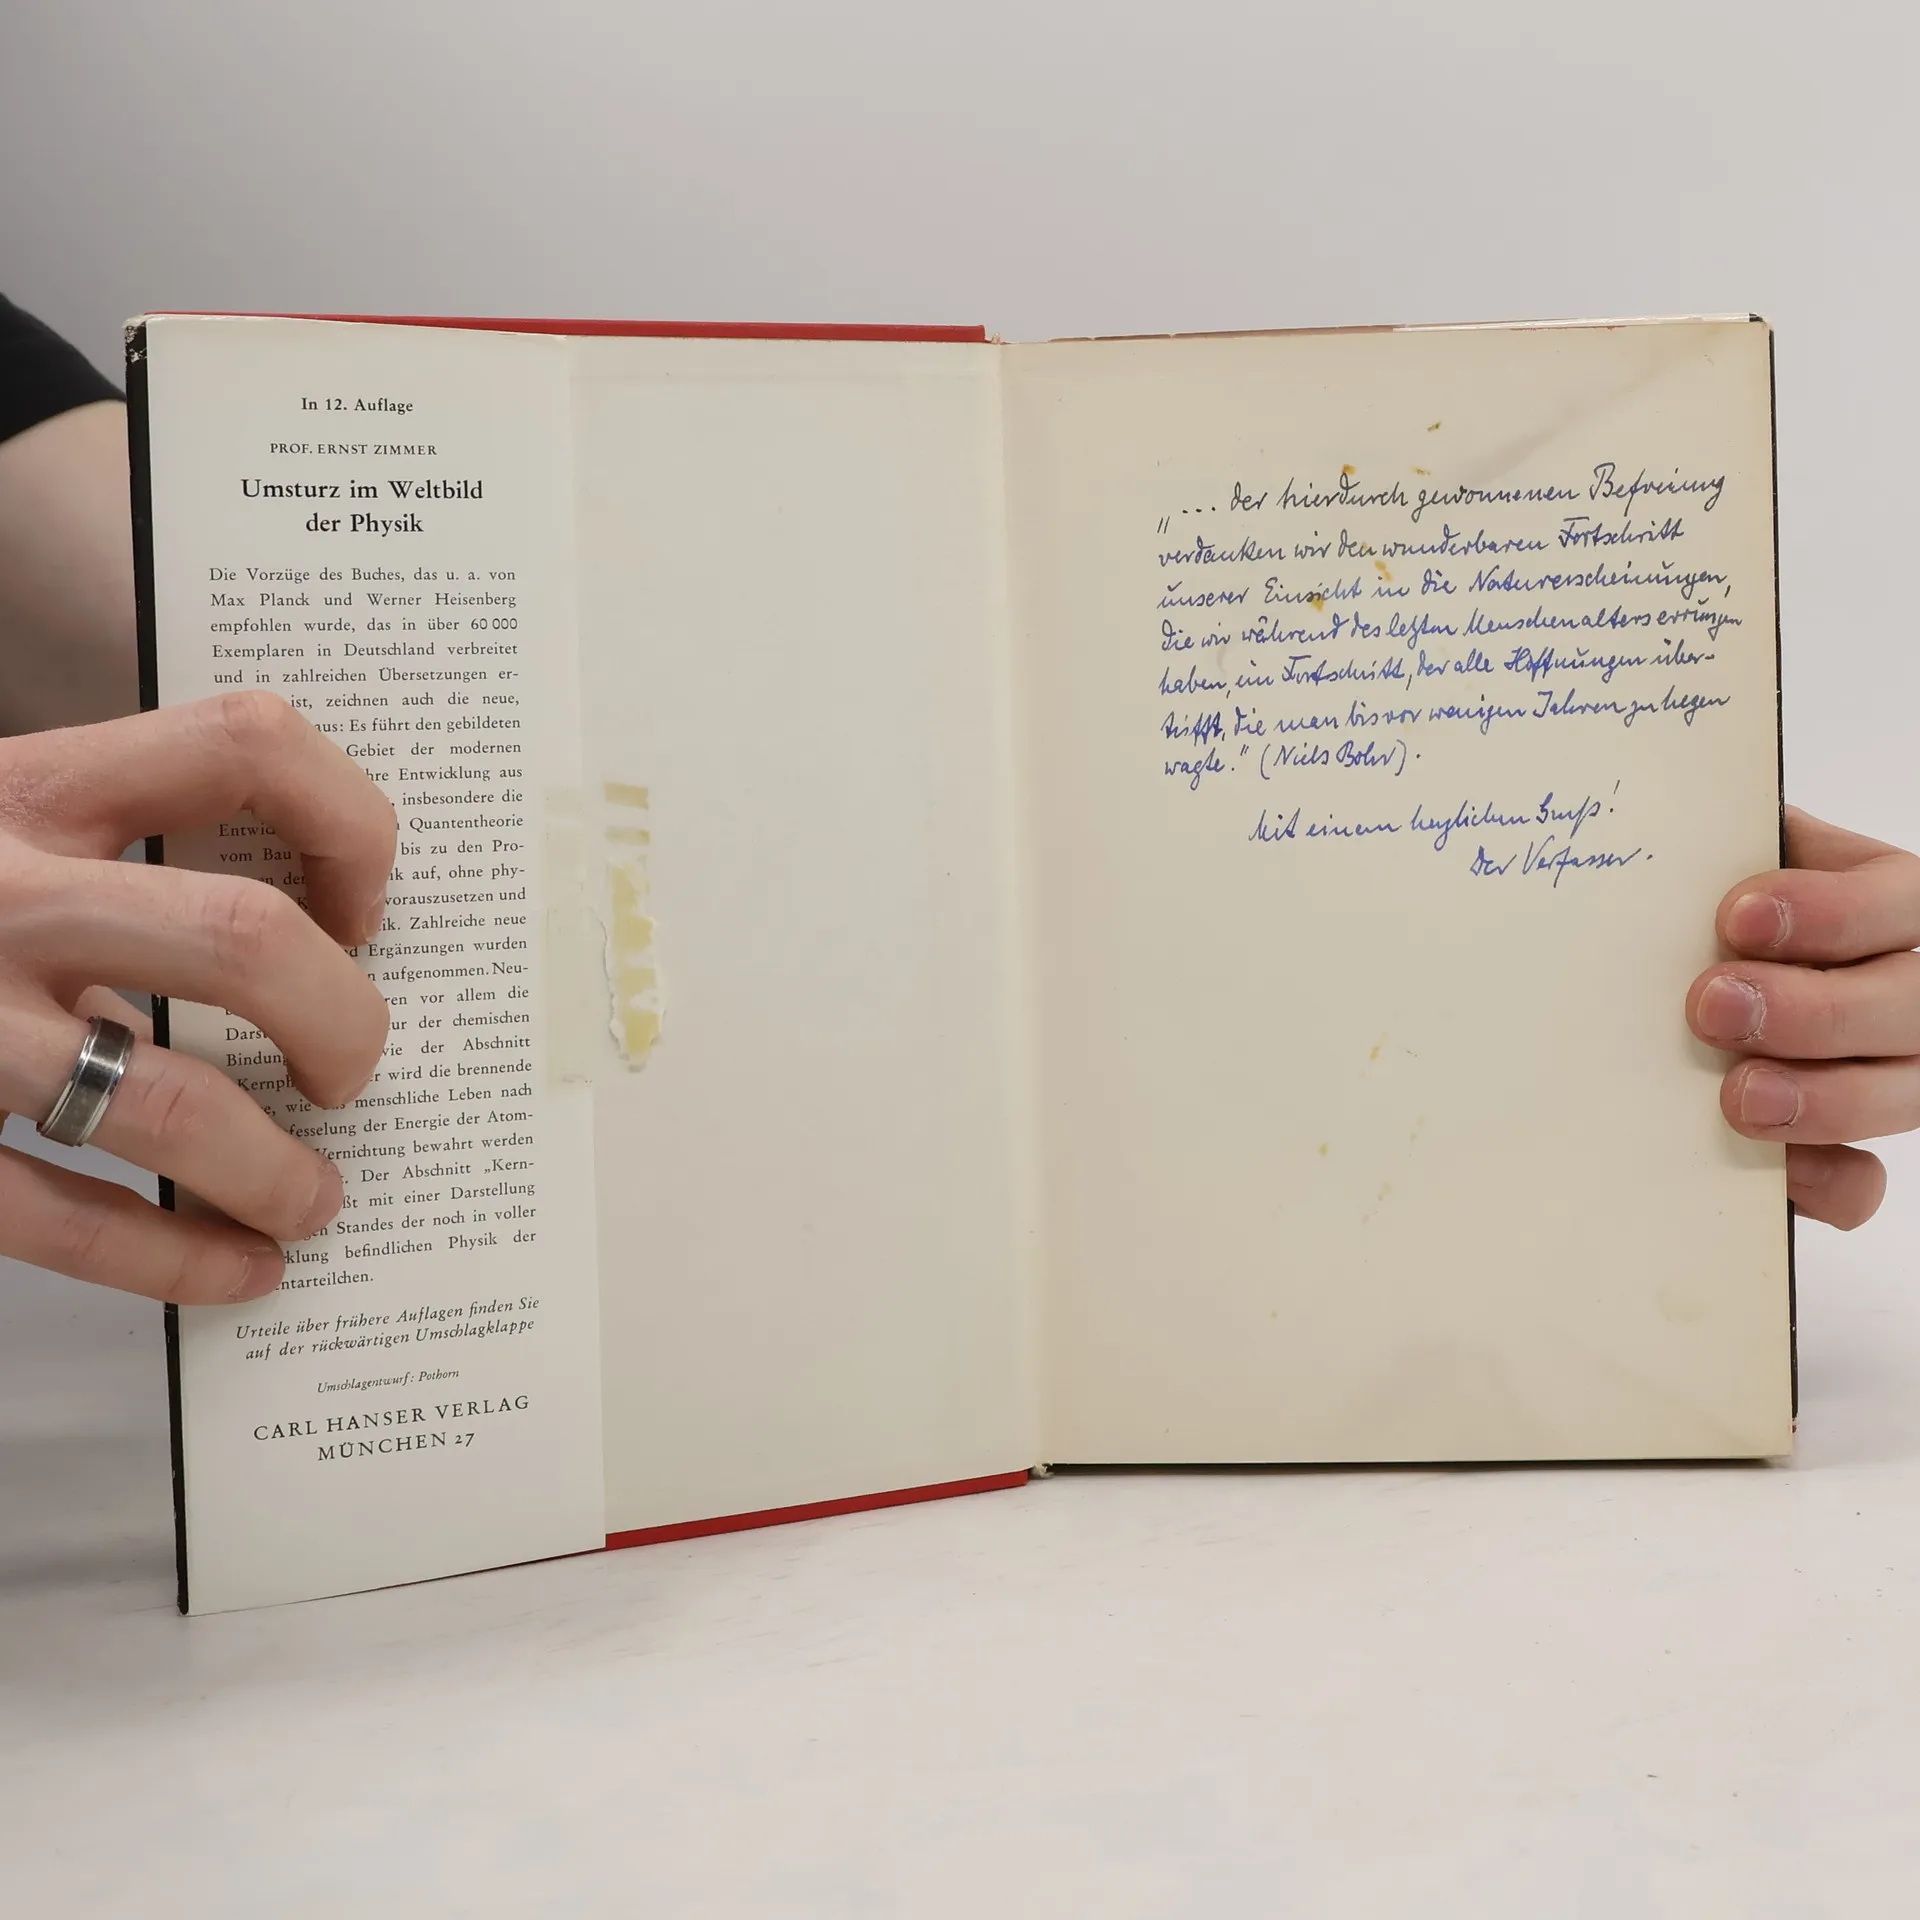 In 12. Auflage
PROF. ERNST ZIMMER
Umsturz im Weltbild
der Physik
Die Vorzüge des Buches, das u. a. von
Max Planck und Werner Heisenberg
empfohlen wurde, das in über 60 000
Exemplaren in Deutschland verbreitet
und in zahlreichen Übersetzungen er-
ist, zeichnen auch die neue,
aus: Es führt den gebildeten
Gebiet der modernen
hre Entwicklung aus
insbesondere die
Entwic Quantentheorie
vom Bau bis zu den Pro-
der ik auf, ohne phy-
vorauszusetzen und
ik. Zahlreiche neue
d Ergänzungen wurden
n aufgenommen. Neu-
ren vor allem die
Darst ur der chemischen
Bindung wie der Abschnitt
Kernph er wird die brennende
e, wie menschliche Leben nach
fesselung der Energie der Atom-
Vernichtung bewahrt werden
. Der Abschnitt „Kern-
ßt mit einer Darstellung
gen Standes der noch in voller
klung befindlichen Physik der
ntarteilchen.
Urteile über frühere Auflagen finden Sie
auf der rückwärtigen Umschlagklappe
Umschlagentwurf: Pothorn
CARL HANSER VERLAG
MÜNCHEN 27
„... der hierdurch gewonnenen Befreiung
verdanken wir den wunderbaren Fortschritt
unserer Einsicht in die Naturerscheinungen,
die wir während des letzten Menschenalters errungen
haben, ein Fortschritt, der alle Hoffnungen über-
trifft, die man bis vor wenigen Jahren zu hegen
wagte." (Niels Bohr).
Mit einem herzlichen Gruß!
Der Verfasser.